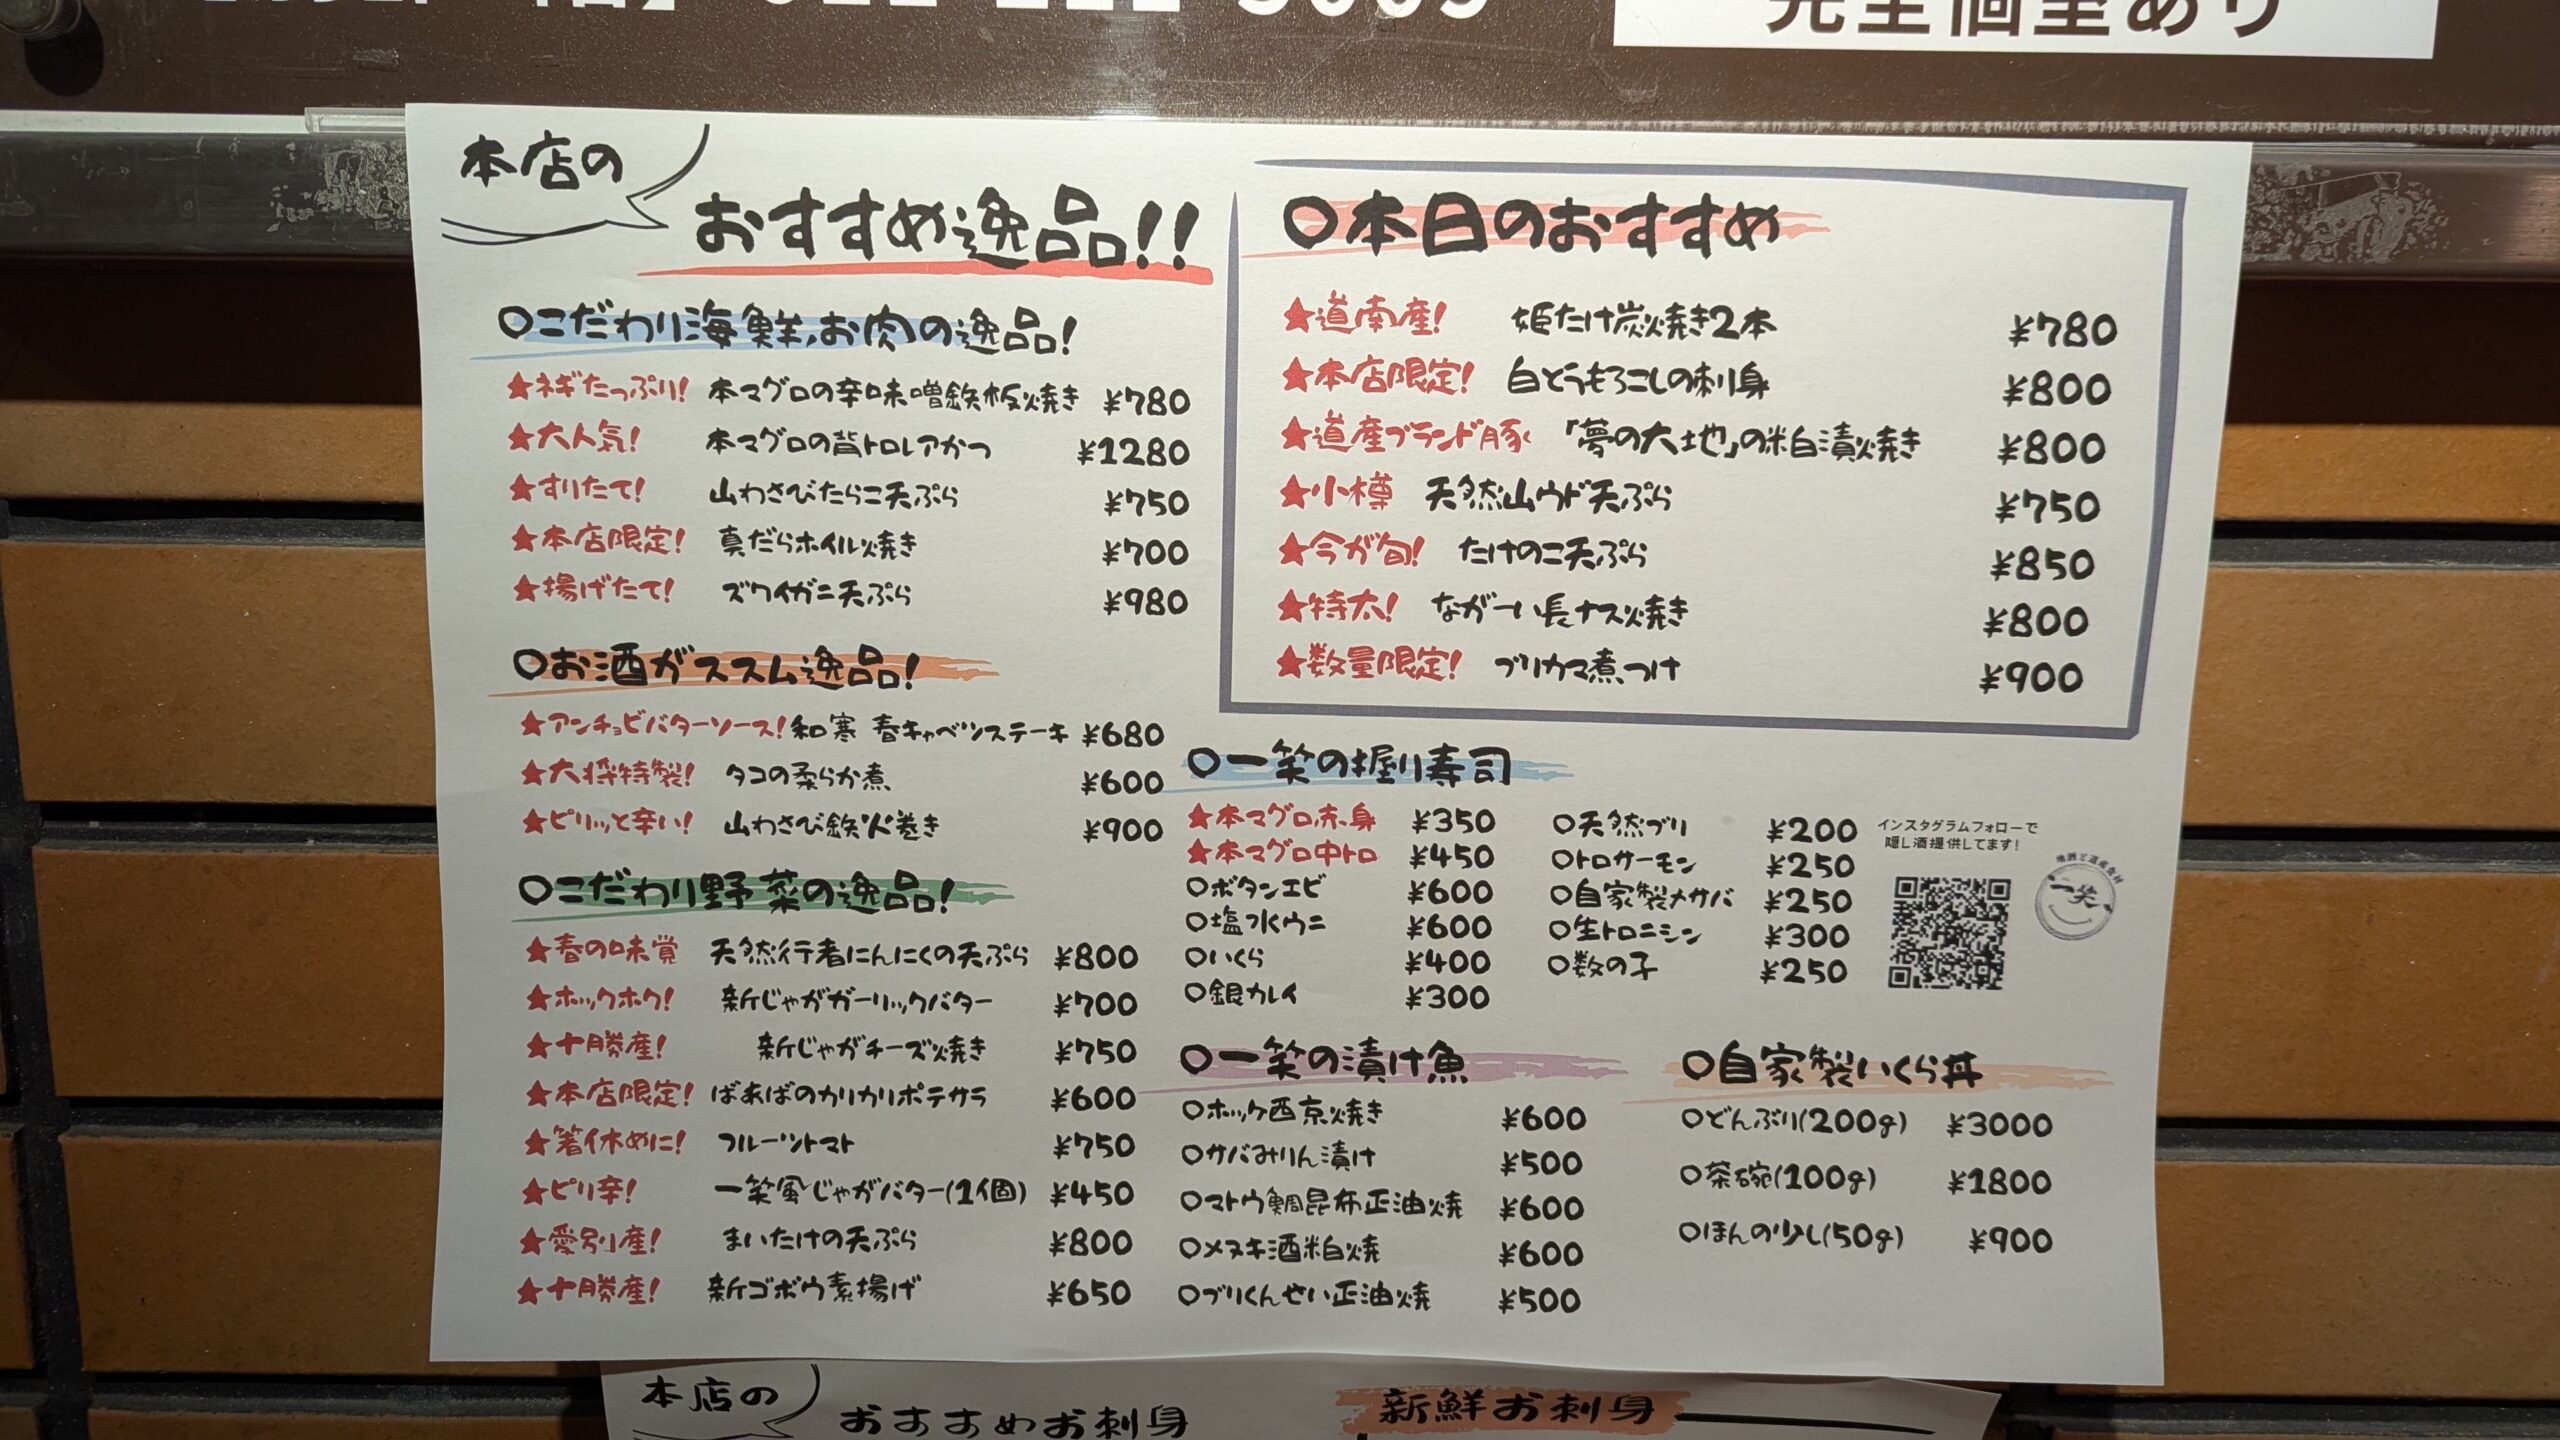 完全個室あり
本店の
おすすめ逸品!!
○こだわり海鮮、お肉の逸品!
★ネギたっぷり! 本マグロの辛味噌鉄板焼き ¥780
★大人気! 本マグロの背トロレアかつ ¥1280
★すりたて! 山わさびたらこ天ぷら ¥750
★本店限定! 真だらホイル焼き ¥700
★揚げたて! ズワイガニ天ぷら ¥980
○お酒がススム逸品!
★アンチョビバターソース! 和寒 春キャベツステーキ ¥680
★大将特製! タコの柔らか煮 ¥600
★ピリッと辛い! 山わさび鉄火巻き ¥900
○こだわり野菜の逸品!
★春の味覚 天然行者にんにくの天ぷら ¥800
★ホックホク! 新じゃがガーリックバター ¥700
★十勝産! 新じゃがチーズ焼き ¥750
★本店限定! ばあばのカリカリポテサラ ¥600
★箸休めに! フルーツトマト ¥750
★ピリ辛! 一笑風じゃがバター(1個) ¥450
★愛別産! まいたけの天ぷら ¥800
★十勝産! 新ゴボウ素揚げ ¥650
○本日のおすすめ
★道南産! 姫たけ炭焼き2本 ¥780
★本店限定! 白とうもろこしの刺身 ¥800
★道産ブランド豚 「夢の大地」の粕漬焼き ¥800
★小樽 天然山ウド天ぷら ¥750
★今が旬! たけのこ天ぷら ¥850
★特太! ながーい長ナス焼き ¥800
★数量限定! ブリカマ煮つけ ¥900
○一笑の握り寿司
★本マグロ赤身 ¥350
★本マグロ中トロ ¥450
○ボタンエビ ¥600
○塩水ウニ ¥600
○いくら ¥400
○銀カレイ ¥300
○天然ブリ ¥200
○トロサーモン ¥250
○自家製〆サバ ¥250
○生トロニシン ¥300
○数の子 ¥250
インスタグラムフォローで
隠し酒提供してます!
一笑
○一笑の漬け魚
○ホッケ西京焼き ¥600
○サバみりん漬け ¥500
○マトウ鯛昆布正油焼 ¥600
○メヌキ酒粕焼 ¥600
○ブリくんせい正油焼 ¥500
○自家製いくら丼
○どんぶり(200g) ¥3000
○茶碗(100g) ¥1800
○ほんの少し(50g) ¥900
本店の
おすすめお刺身
新鮮お刺身